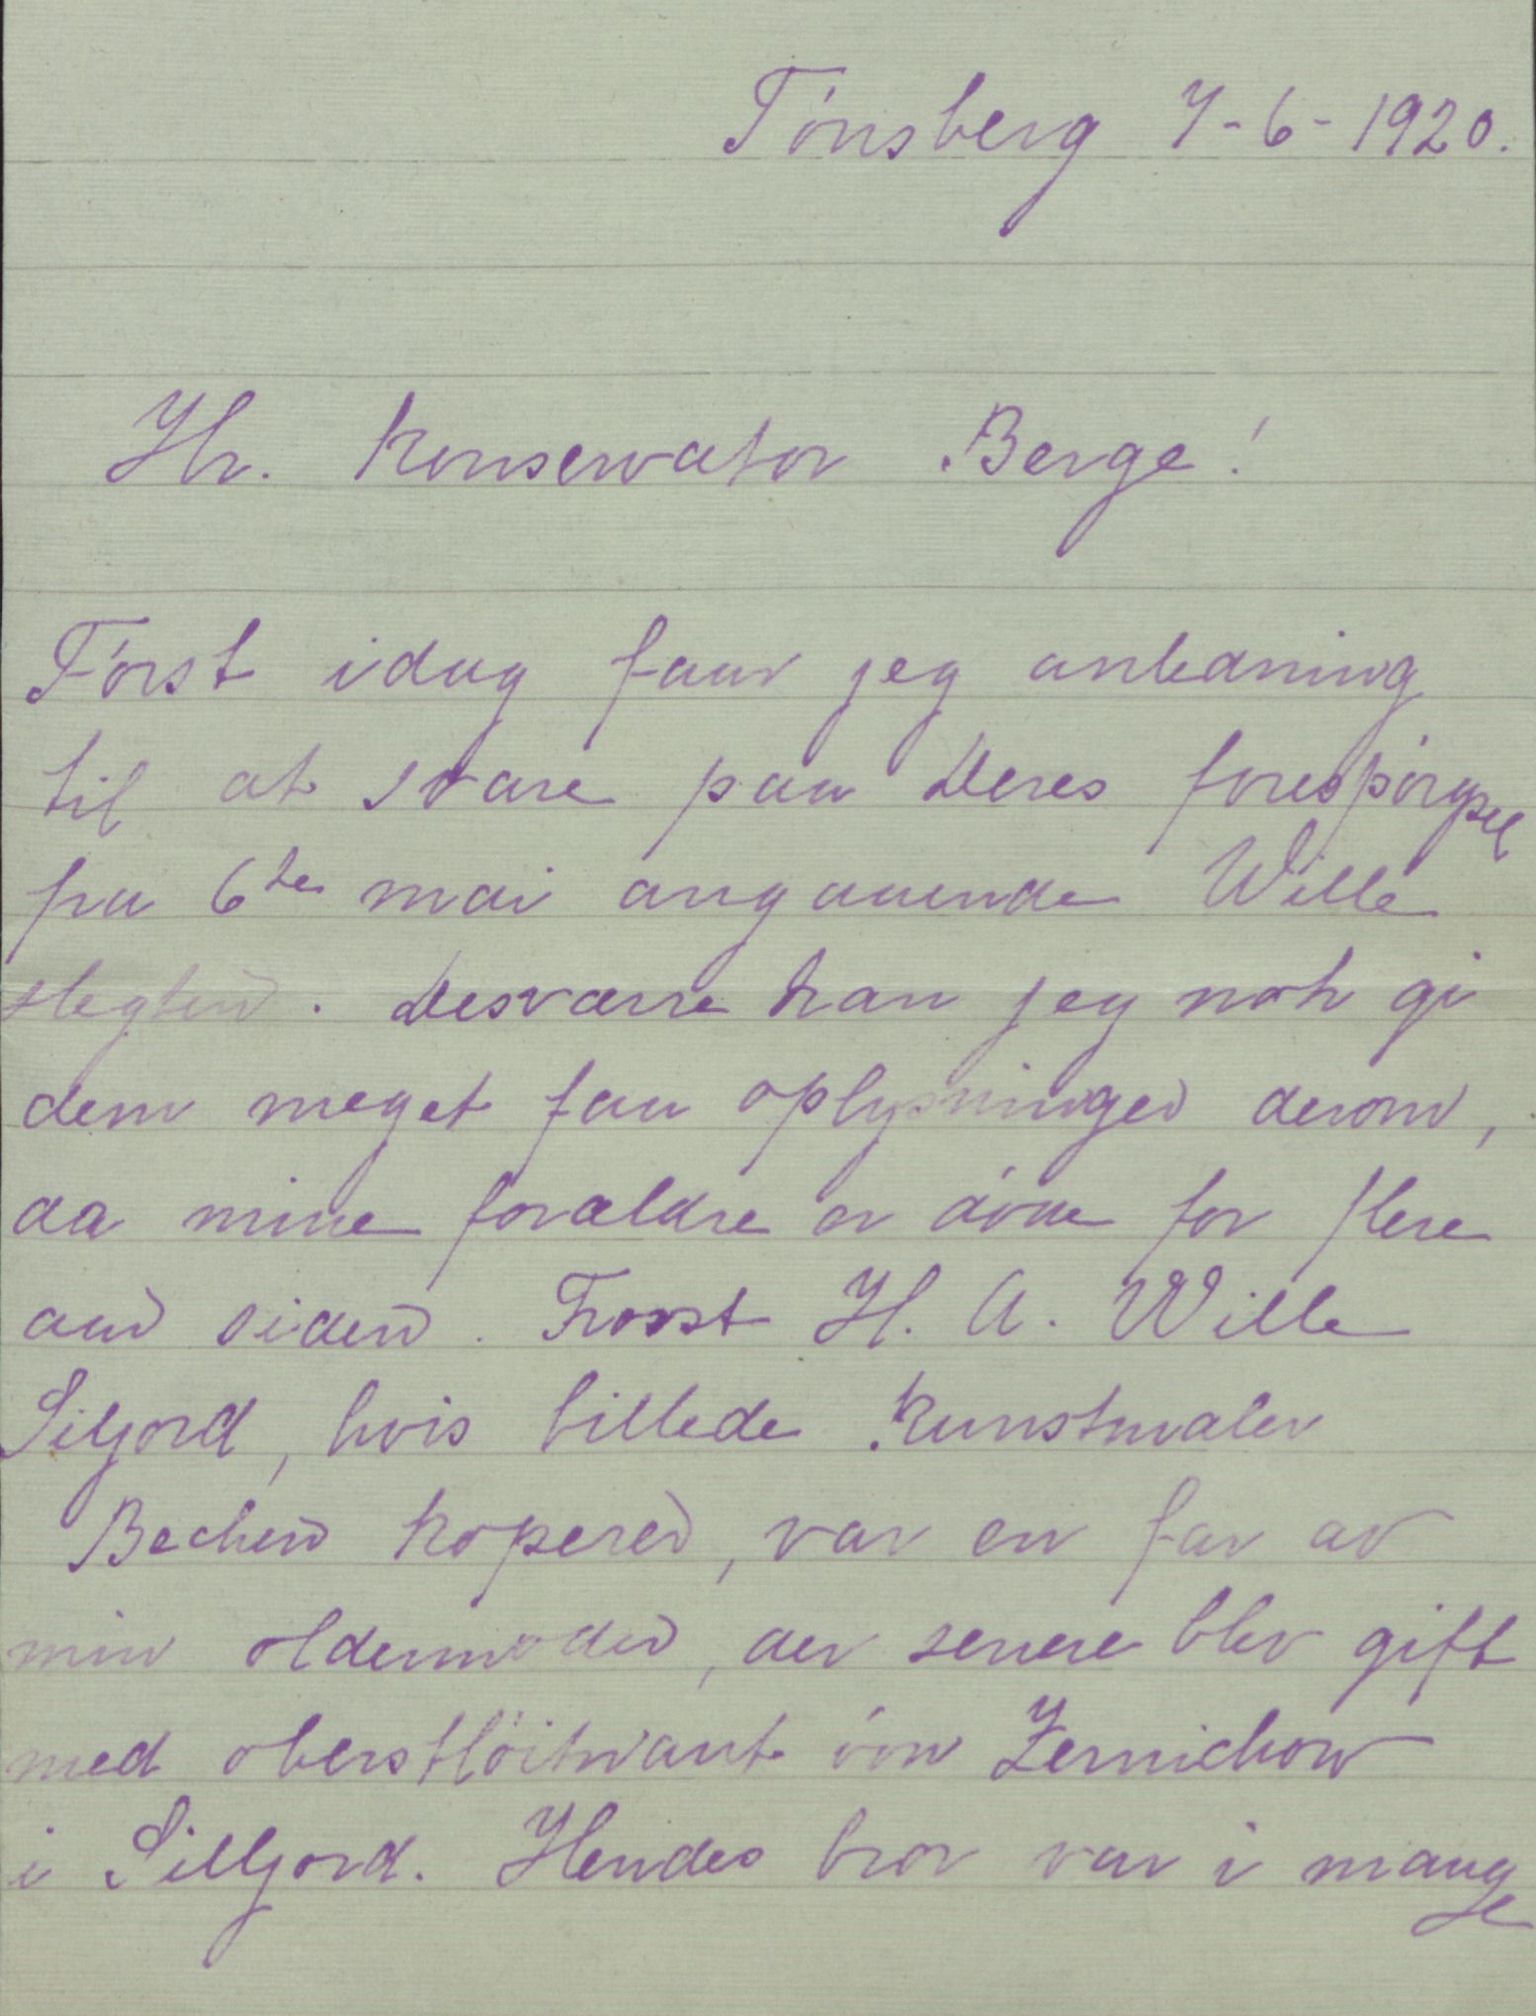 Tönsberg 7-6-1920.
Hr. Konservator Berge!
Först idag faar jeg anledning
til at svare paa Deres forespörgsel
fra 6te mai angaaende Wille
slegten. Desværre kan jeg nok gi
dem meget faa oplysninger derom,
da mine forældre er döde for flere
aar siden. Provst H. A. Wille
Siljord, hvis billede kunstmaler
Becher koperer, var en far av
min oldemoder, der senere blev gift
med oberstlöitnant von Zernichow
i Silljord. Hendes bror var i mange